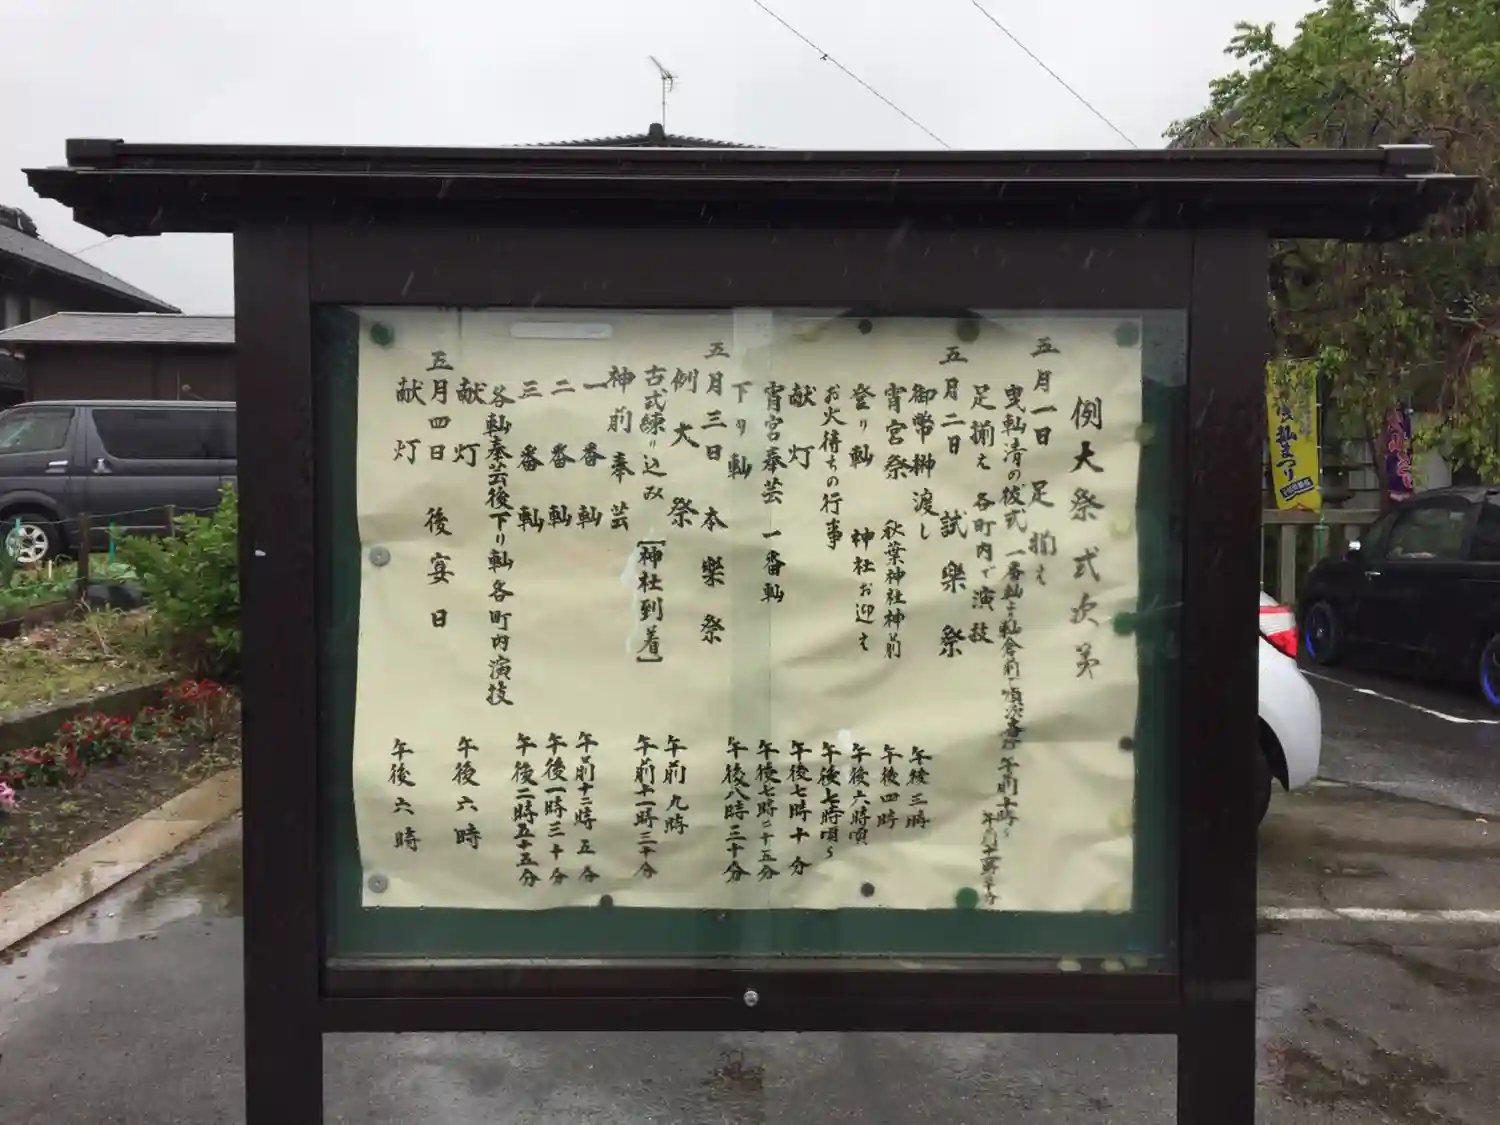 例大祭式次第
五月一日 足揃え
曳軕清の祓式 一番軕より軕倉前 順次 午前十時〜
午前十一時三十分
足揃え 各町内で演技
五月二日 試楽祭
御幣榊渡し 午後三時
宵宮祭 秋葉神社神前 午後四時
登り軕 神社お迎え 午後六時頃
お火待ちの行事 午後七時頃〜
献灯 午後七時十分
宵宮奉芸 一番軕 午後七時二十五分
下り軕 午後八時三十分
五月三日 本楽祭
例大祭 午前九時
古式練り込み [神社到着] 午前十一時三十分
神前奉芸
一番軕 午前十二時五分
二番軕 午後一時三十分
三番軕 午後二時五十五分
各軕奉芸後下り軕各町内演技
献灯 午後六時
五月四日 後宴日
献灯 午後六時